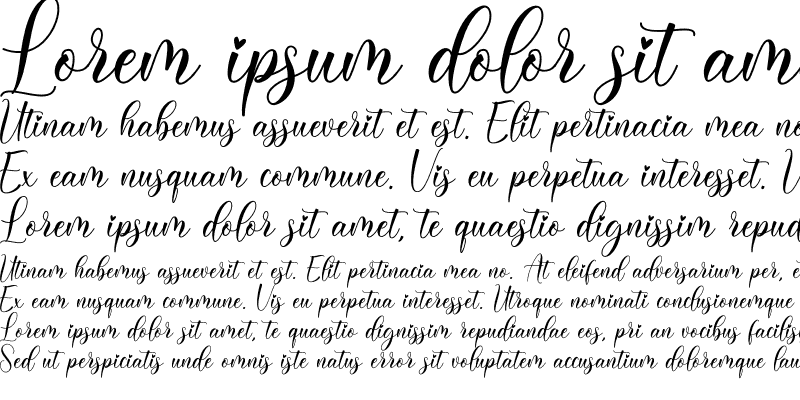 Lorem ipsum dolor sit am
Utinam habemus assueverit et est. Elit pertinacia mea no
Ex eam nusquam commune. Vis eu perpetua interesset. V
Lorem ipsum dolor sit amet, te quaestio dignissim repud
Utinam habemus assueverit et est. Elit pertinacia mea no. At eleifend adversarium per, e
Ex eam nusquam commune. Vis eu perpetua interesset. Utroque nominati conclusionemque
Lorem ipsum dolor sit amet, te quaestio dignissim repudiandae eos, pri an vocibus facilis
Sed ut perspiciatis unde omnis iste natus error sit voluptatem accusantium doloremque lau